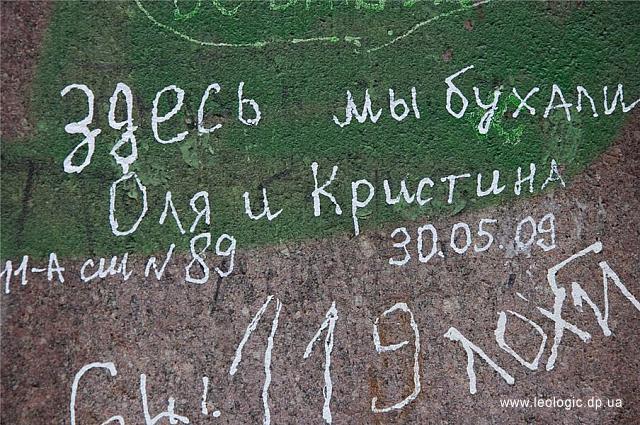 здесь мы бухали
Оля и Кристина
11-А сш N 89 30.05.09
119 лохи
www.leologic.dp.ua